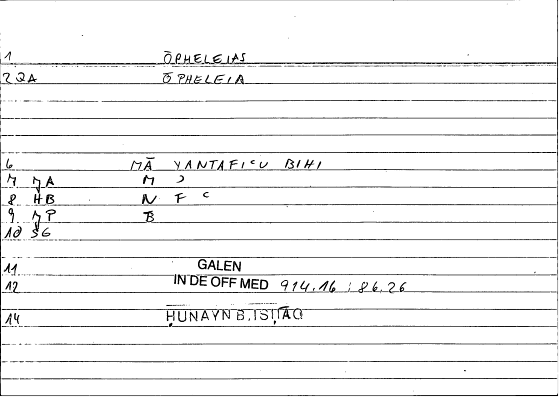 1 ŌPHELEIAS
2 QA ŌPHELEIA
6 MĀ YANTAFIʿU BIHI
7 MA M ʾ
8 HB N F ʿ
9 MP B
10 SG
11 GALEN
12 IN DE OFF MED 914.16 : 86.26
14 ḤUNAYN B. ISḤĀQ